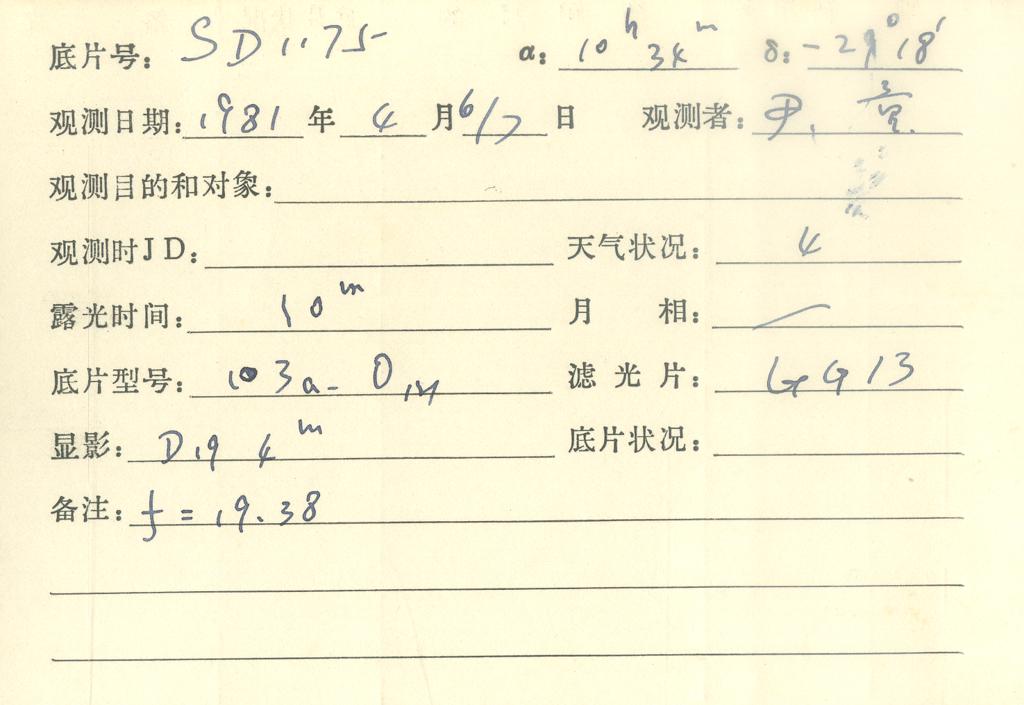 底片号: SD1175 α: 10h 34m δ: -29°18′
观测日期: 1981 年 4 月 6/7 日 观测者: 尹.
观测目的和对象:
观测时JD: 天气状况: 4
露光时间: 10m 月 相: —
底片型号: 103a-O 滤光片: GG13
显影: D19 4m 底片状况:
备注: f = 19.38